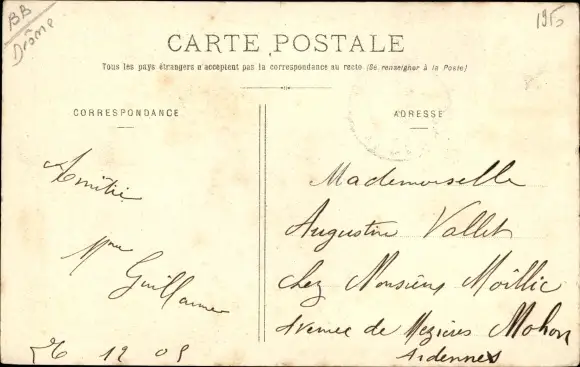 BB
Drôme
CARTE POSTALE
Tous les pays étrangers n'acceptent pas la correspondance au recto (Se renseigner à la Poste)
CORRESPONDANCE
ADRESSE
Amitié
Mme
Guillaume
26 12 05
Mademoiselle
Augustine Vallet
chez Monsieur Moillic
Avenue de Mezières Mohon
Ardennes